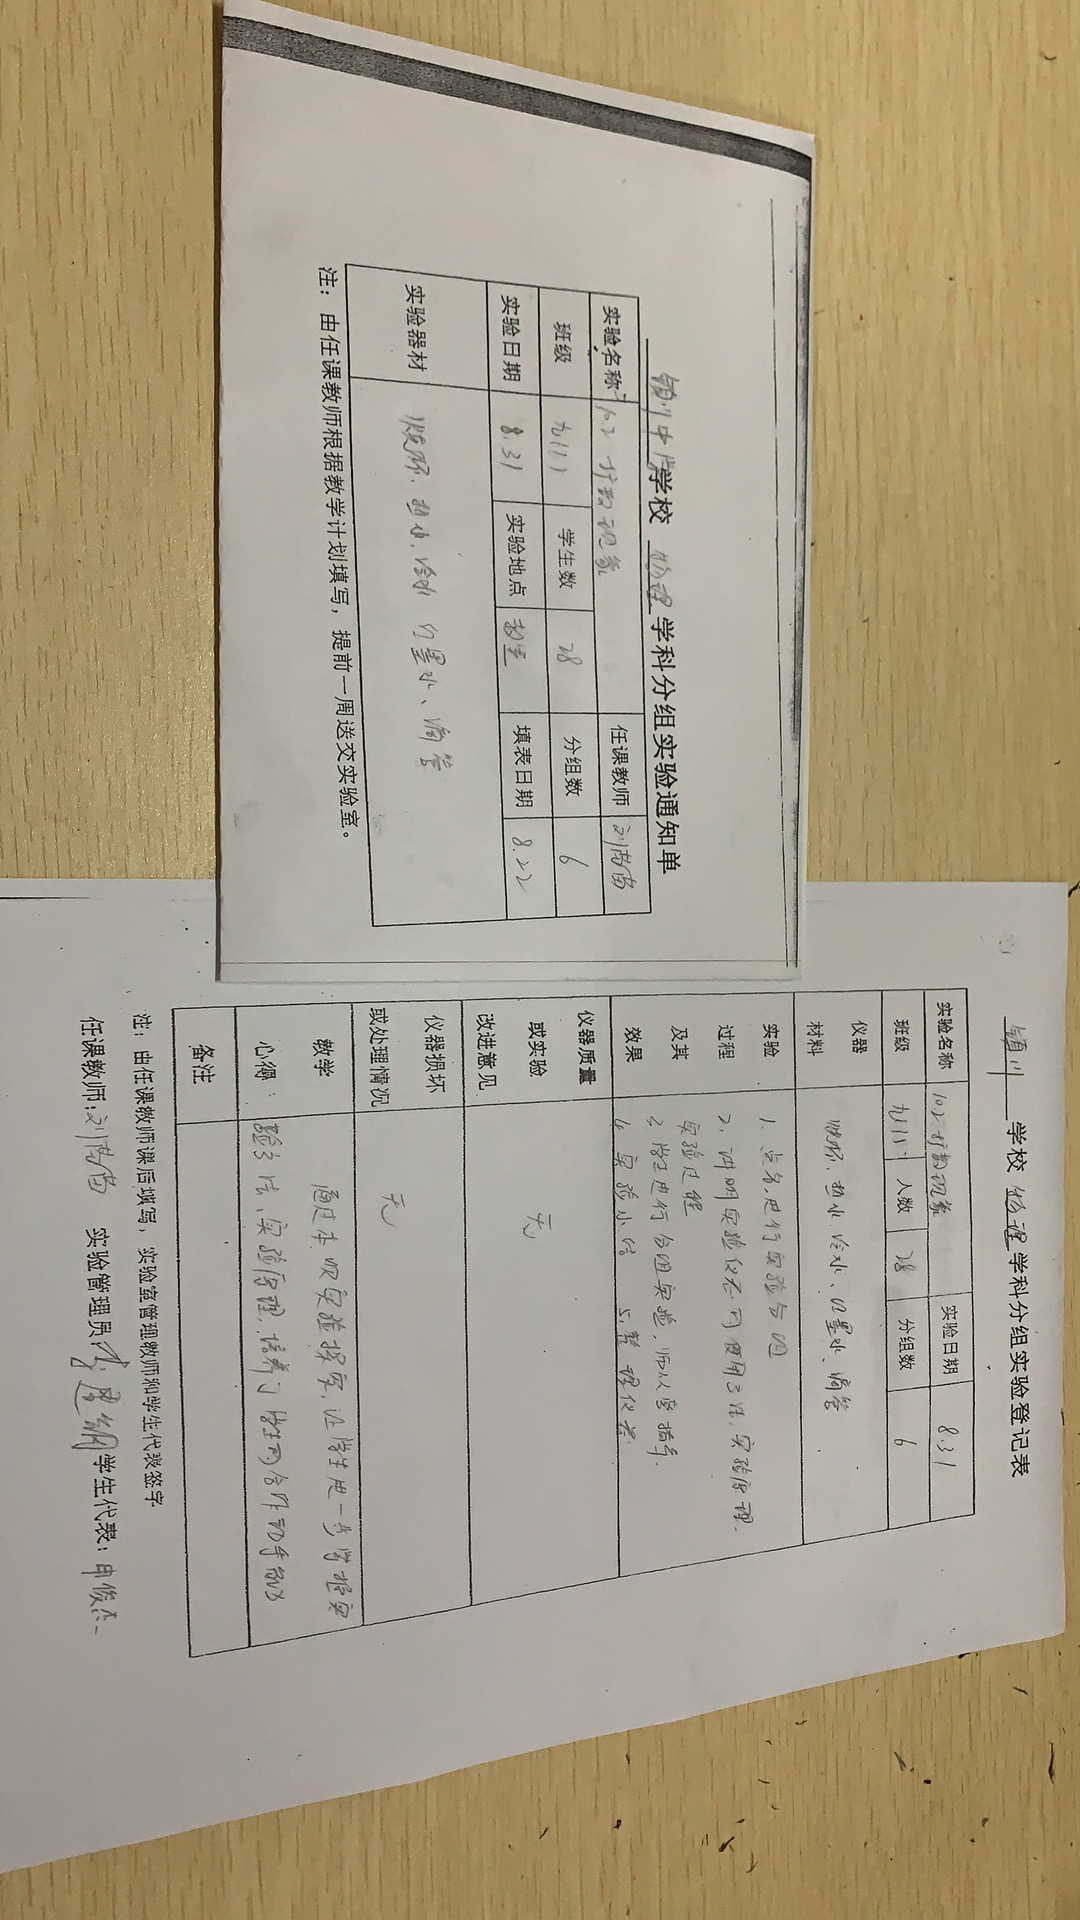 镇川中学学校 物理 学科分组实验通知单
实验名称 10.2 扩散现象 任课教师 刘苗苗
班级 九(1) 学生数 28 分组数 6
实验日期 8.31 实验地点 教室 填表日期 8.22
实验器材 烧杯、热水、冷水、红墨水、滴管
注：由任课教师根据教学计划填写，提前一周送交实验室。
镇川 学校 物理 学科分组实验登记表
实验名称 10.2 扩散现象 实验日期 8.31
班级 九(1) 人数 28 分组数 6
仪器材料 烧杯、热水、冷水、红墨水、滴管
实验过程及其效果
1. 点名，进行实验分组
2. 讲明实验仪器的使用方法、实验原理、
实验过程
3 学生进行分组实验，师从旁指导.
4 实验小结 5. 整理仪器
仪器质量或实验改进意见 无
仪器损坏或处理情况 无
教学心得：
通过本次实验探究，让学生进一步掌握实
验方法、实验原理，培养了学生的合作动手能力
备注
注：由任课教师课后填写，实验室管理教师和学生代表签字
任课教师：刘苗苗 实验管理员：李建钢 学生代表：申俊杰